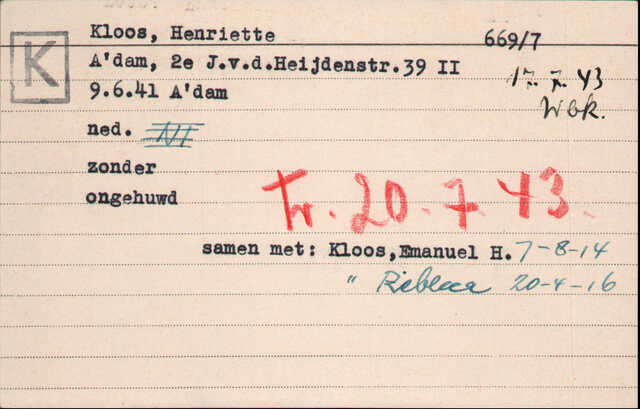 Kloos, Henriette 669/7
K
A'dam, 2e J.v.d.Heijdenstr.39 II
17.7.43
9.6.41 A'dam
Wbk.
ned. NI
zonder
ongehuwd
Tr. 20.7.43.
samen met: Kloos,Emanuel H. 7-8-14
" Rebecca 20-4-16